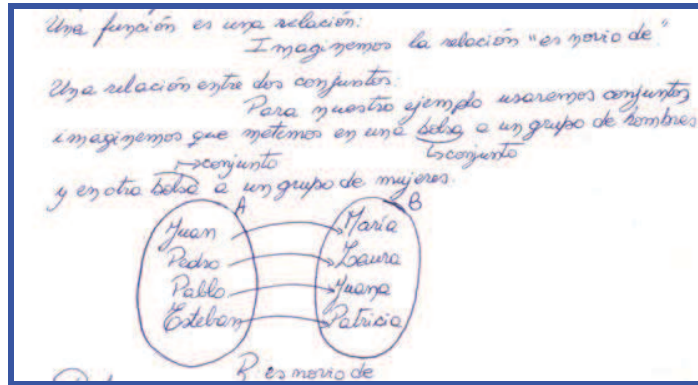 Una función es una relación:
Imaginemos la relación "es novio de"
Una relación entre dos conjuntos:
Para nuestro ejemplo usaremos conjuntos,
imaginemos que metemos en una bolsa a un grupo de hombres
↳conjunto
↦conjunto
y en otra bolsa a un grupo de mujeres.
A B
Juan María
Pedro Laura
Pablo Juana
Esteban Patricia
R es novio de